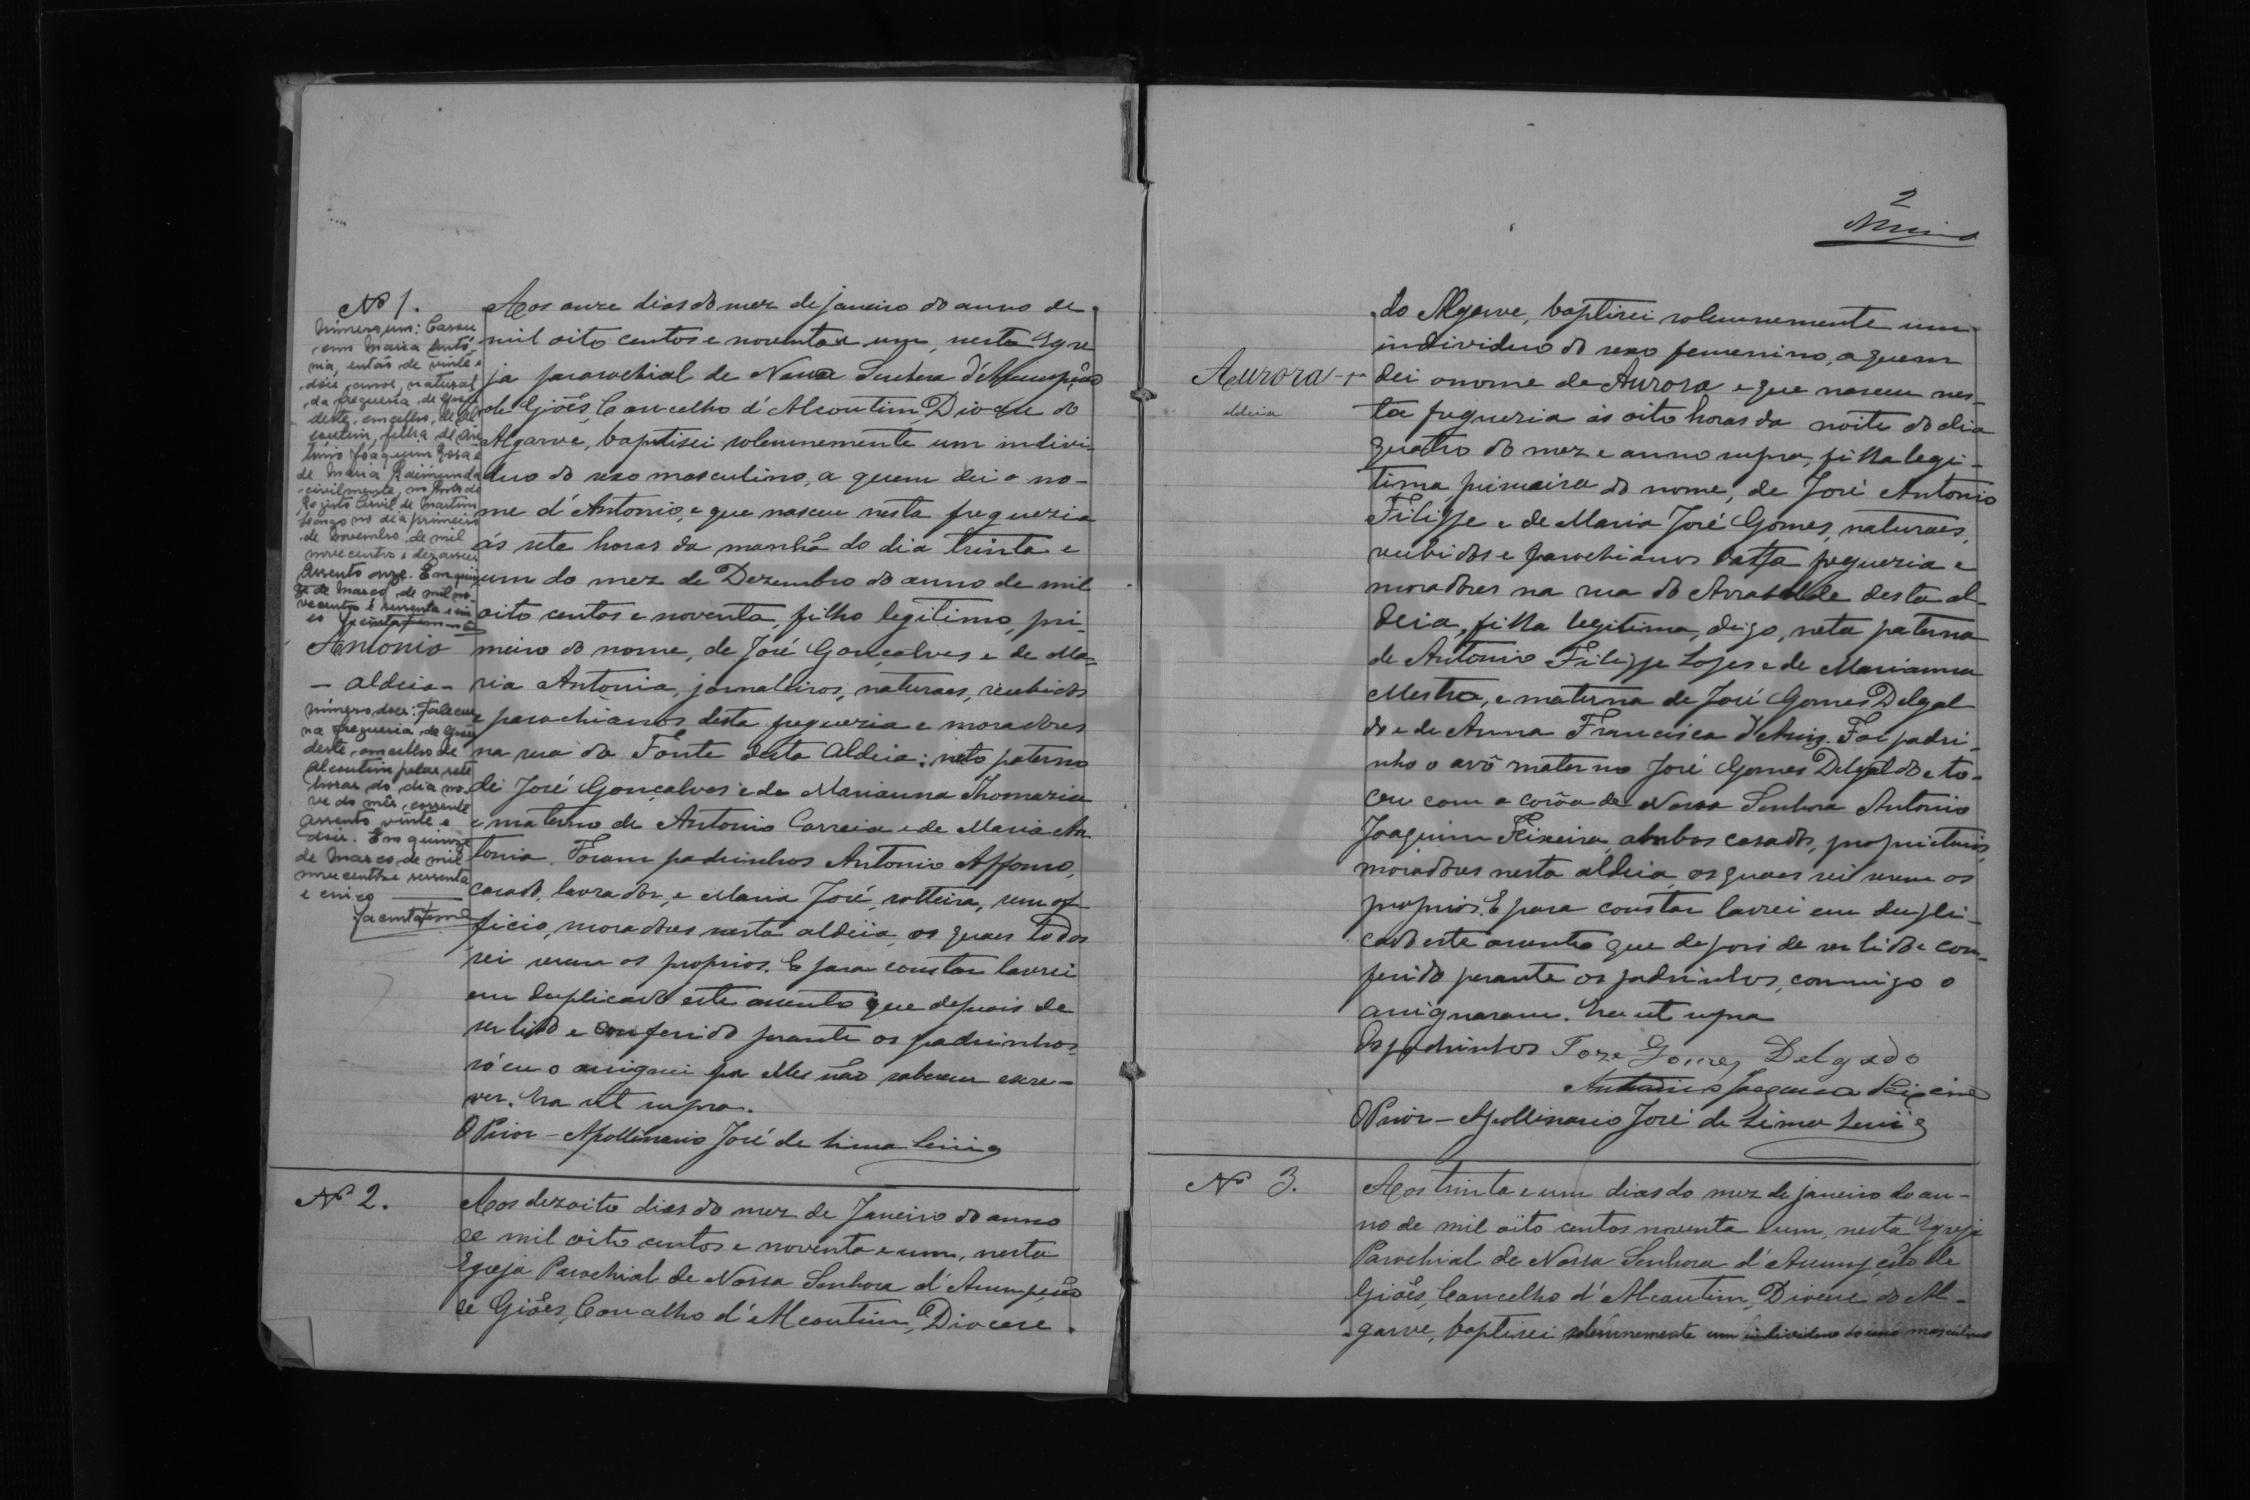 Nº 1.
Número um: Casou
com Maria Antó
nia, então de vinte e
dois anos, natural
da freguesia de Giões
deste concelho de Al
coutim, filha de
Joaquim Rosa e
de Maria Raimunda
civilmente, no Posto do
Registo Civil de Martim
longo no dia primeiro
de Novembro de mil
novecentos e dezasseis
Assento onze. Em quin
ze de Março de mil no
vecentos e sessenta e cin
co
Antonio
- aldeia -
número dois: Faleceu
na freguesia de Giões
deste concelho de
Alcoutim pelas sete
horas do dia no
ve do mês corrente
assento vinte e
dois. Em quinze
de Março de mil
novecentos e sessenta
e cinco
Aos onze dias do mez de janeiro do anno de
mil oito centos e noventa e um, nesta Egre
ja parochial de Nossa Senhora d'Assumpção
de Giões, Concelho d'Alcoutim, Diocese do
Algarve, baptisei solemnemente um indivi-
duo do sexo masculino, a quem dei o no-
me d'Antonio, e que nasceu nesta freguezia
ás sete horas da manhã do dia trinta e
um do mez de Dezembro do anno de mil
oito centos e noventa, filho legitimo, pri-
meiro do nome, de José Gonçalves e de Ma-
ria Antonia, jornaleiros, naturaes, recebidos
e parochianos desta freguezia e moradores
na rua da Fonte desta Aldeia; neto paterno
de José Gonçalves e de Marianna Thomazia
e materno de Antonio Correia e de Maria An
tonia. Foram padrinhos Antonio Affonso,
casado, lavrador, e Maria José, solteira, sem of
ficio, moradores nesta aldeia, os quaes todos
sei serem os proprios. E para constar lavrei
em duplicado este assento que depois de
ser lido e conferido perante os padrinhos,
só eu o assignei por elles não saberem escre-
ver. Era ut supra.
O Prior - Apollinario José de Lima
Nº 2.
Aos dezoito dias do mez de Janeiro do anno
de mil oito centos e noventa e um, nesta
Egreja Parochial de Nossa Senhora d'Assumpção
de Giões, Concelho d'Alcoutim, Diocese
2
Aurora
aldeia
do Algarve, baptisei solemnemente um
individuo do sexo femenino, a quem
dei o nome de Aurora e que nasceu nes-
ta freguezia ás oito horas da noite do dia
quatro do mez e anno supra, filha legi-
tima, primeira do nome, de José Antonio
Filippe e de Maria José Gomes, naturaes,
recebidos e parochianos desta freguezia e
moradores na rua do Arrabalde desta al-
deia, filha legitima, digo, neta paterna
de Antonio Filippe Lopes e de Marianna
Mestra, e materna de José Gomes Delgal
do e de Anna Francisca d'Assis. Foi padri-
nho o avô materno José Gomes Delgaldo e to-
cou com a corôa de Nossa Senhora Antonio
Joaquim Teixeira, ambos casados, proprietarios,
moradores nesta aldeia, os quaes sei serem os
proprios. E para constar lavrei em dupli-
cado este assento que depois de ser lido e con-
ferido perante os padrinhos, commigo o
assignaram. Era ut supra
Os padrinhos Joze Gomes Delgado
Antonio Joaquim Teixeira
O Prior - Apollinario José de Lima
Nº 3.
Aos trinta e um dias do mez de janeiro do an-
no de mil oito centos noventa e um, nesta Egreja
Parochial de Nossa Senhora d'Assumpção de
Giões, Concelho d'Alcoutim, Diocese do Al-
garve, baptisei solemnemente um individuo do sexo masculino